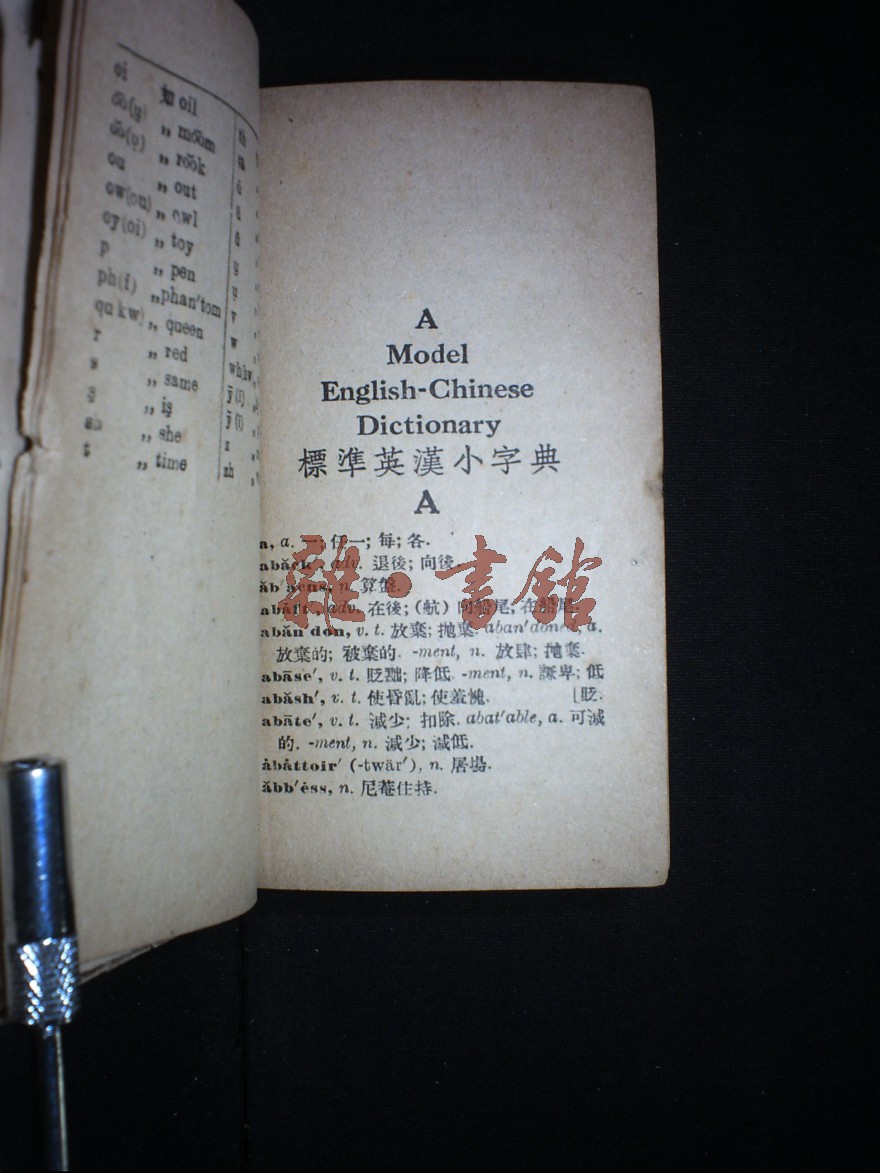 oi 如 oil
o͞o(ṳ) „ mo͞om
o͝o(ụ) „ ro͝ok
ou „ out
ow(ou) „ owl
oy(oi) „ toy
p „ pen
ph(f) „ phan'tom
qu kw) „ queen
r „ red
s „ same
ş „ iş
sh „ she
t „ time
th
v
w
wh hw
ȳ(ī)
z
zh
A
Model
English-Chinese
Dictionary
標準英漢小字典
A
a, a. 一; 任一; 每; 各.
abăck', adv. 退後; 向後.
ăb'acus, n. 算盤.
abăft', adv. 在後; (航) 向船尾; 在船尾.
abăn'don, v. t. 放棄; 拋棄. aban'doned, a.
放棄的; 被棄的. -ment, n. 放肆; 拋棄.
abāse', v. t. 貶黜; 降低. -ment, n. 謙卑; 低
abăsh', v. t. 使昏亂; 使羞愧. [貶.
abāte', v. t. 減少; 扣除. abat'able, a. 可減
的. -ment, n. 減少; 減低.
ȧbȧttoir' (-twär'), n. 屠場.
ăbb'ėss, n. 尼菴住持.
雜·書館